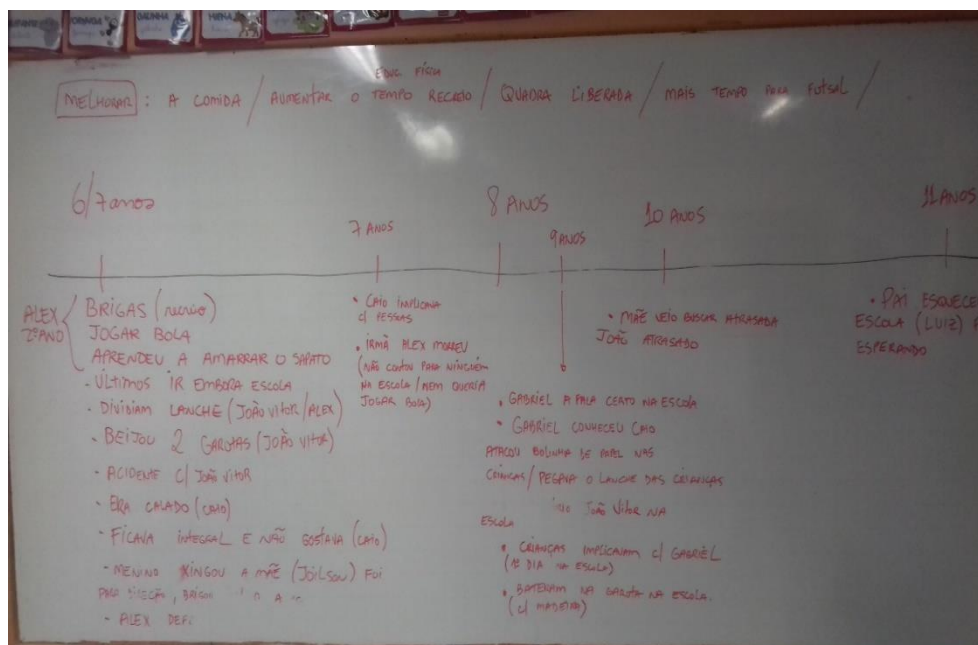 GALINHA
HIENA
EDUC. FÍSICA
MELHORAR : A COMIDA / AUMENTAR O TEMPO RECREIO / QUADRA LIBERADA / MAIS TEMPO PARA FUTSAL /
6/7 anos
7 ANOS
8 ANOS
9 ANOS
10 ANOS
11 ANOS
ALEX
2º ANO
BRIGAS (recreio)
JOGAR BOLA
APRENDEU A AMARRAR O SAPATO
- ÚLTIMOS IR EMBORA ESCOLA
- DIVIDIAM LANCHE (JOÃO VITOR/ALEX)
- BEIJOU 2 GAROTAS (JOÃO VITOR)
- ACIDENTE C/ JOÃO VITOR
- ERA CALADO (CAIO)
- FICAVA INTEGRAL E NÃO GOSTAVA (CAIO)
- MENINO XINGOU A MÃE (JOILSON) FOI
PARA DIREÇÃO, BRIGOU
- ALEX DEFI
• CAIO IMPLICAVA
C/ PESSOAS
• IRMÃ ALEX MORREU
(NÃO CONTOU PARA NINGUÉM
NA ESCOLA / NEM QUERIA
JOGAR BOLA)
• GABRIEL A FALA CERTO NA ESCOLA
• GABRIEL CONHECEU CAIO
ATACOU BOLINHA DE PAPEL NAS
CRIANÇAS / PEGAVA O LANCHE DAS CRIANÇAS
JOÃO VITOR NA
ESCOLA
• CRIANÇAS IMPLICAVAM C/ GABRIEL
(1º DIA NA ESCOLA)
• BATERAM NA GAROTA NA ESCOLA.
(C/ MADEIRA)
• MÃE VEIO BUSCAR ATRASADA
JOÃO ATRASADO
• PAI ESQUECE
ESCOLA (LUIZ)
ESPERANDO